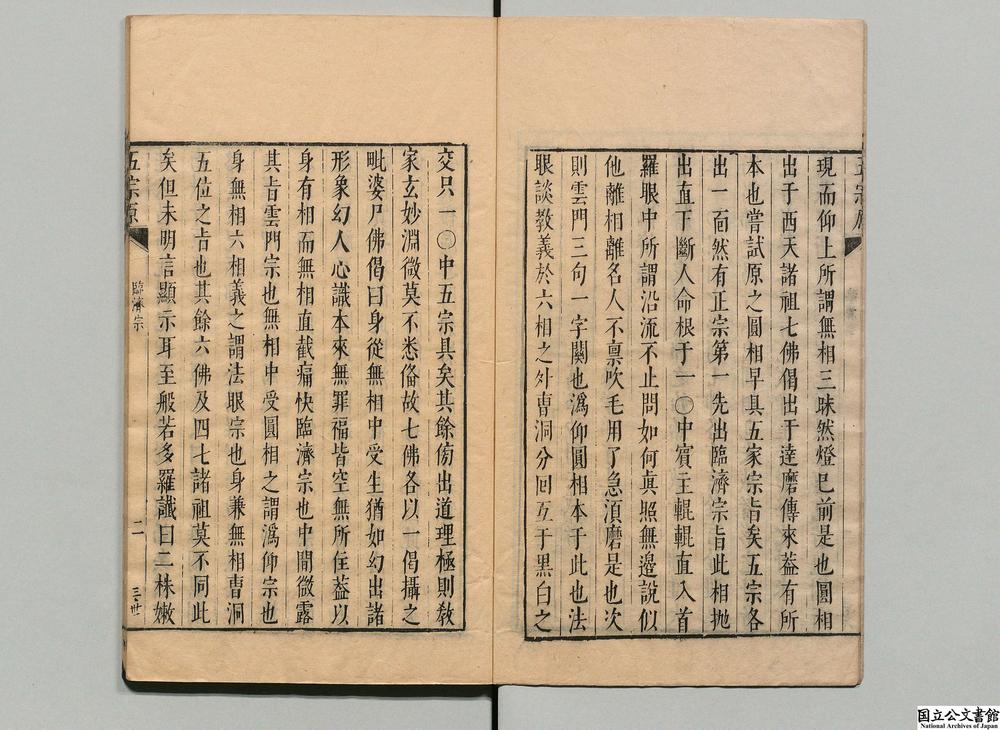 五宗原
現而仰上所謂無相三昧然燈已前是也圓相
出于西天諸祖七佛偈出于達磨傳來葢有所
本也嘗試原之圓相早具五家宗旨矣五宗各
出一面然有正宗第一先出臨濟宗旨此相拋
出直下斷人命根于一〇中賓主輥輥直入首
羅眼中所謂沿流不止問如何眞照無邊說似
他離相離名人不禀吹毛用了急須磨是也次
則雲門三句一字關也溈仰圓相本于此也法
眼談教義於六相之外曹洞分回互于黑白之
交只一〇中五宗具矣其餘傍出道理極則敎
家玄妙淵微莫不悉俻故七佛各以一偈攝之
毗婆尸佛偈曰身從無相中受生猶如幻出諸
形象幻人心識本來無罪福皆空無所住葢以
身有相而無相直截痛快臨濟宗也中間微露
其旨雲門宗也無相中受圓相之謂溈仰宗也
身無相六相義之謂法眼宗也身兼無相曹洞
五位之旨也其餘六佛及四七諸祖莫不同此
矣但未明言顯示耳至般若多羅讖曰二株嫩
五宗原 臨濟宗 二 三卅
国立公文書館
National Archives of Japan